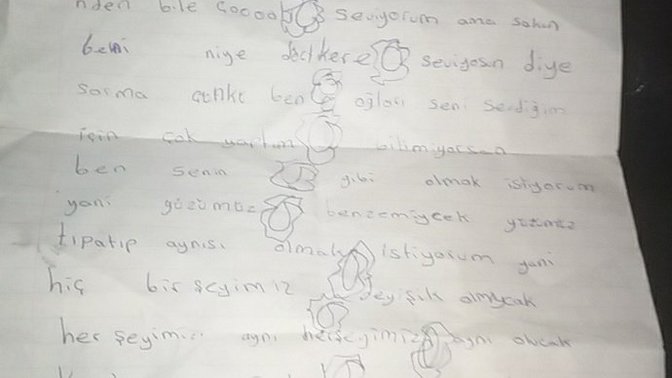 nden bile çooook seviyorum ama sakın
beni niye seviyosın diye
sorma çünkü ben seni sevdiğim
için çok bilimiyorsan
ben senin gibi olmak istiyorum
yani gözümüz benzemiycek yüzümüz
tıpatıp aynısı olmak istiyorum yani
hiç bir şeyimiz deyişik olmycak
her şeyimiz aynı herşeyimiz aynı olucak